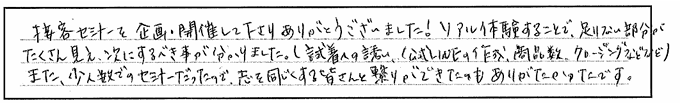 接客セミナーを企画・開催して下さりありがとうございました！リアル体験することで、足りない部分が
たくさん見え、次にするべき事が分かりました。（試着への誘い、公式LINEの作成、商品数、クロージングなどなど）
また、少人数でのセミナーだったので、志を同じくする皆さんと繋りができたのもありがたかったです。